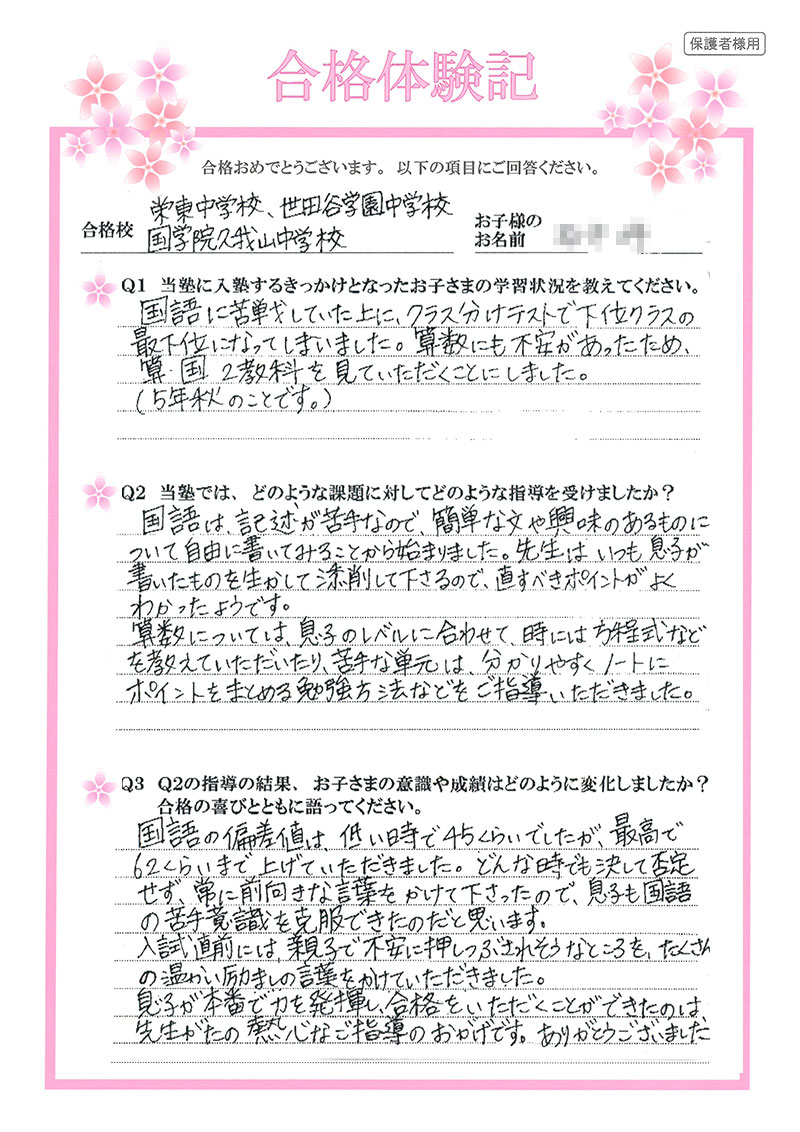 保護者様用
合格体験記
合格おめでとうございます。以下の項目にご回答ください。
合格校
栄東中学校、世田谷学園中学校
国学院久我山中学校
お子様の
お名前
Q1 当塾に入塾するきっかけとなったお子さまの学習状況を教えてください。
国語に苦戦していた上に、クラス分けテストで下位クラスの
最下位になってしまいました。算数にも不安があったため、
算・国 2教科を見ていただくことにしました。
(5年秋のことです。)
Q2 当塾では、どのような課題に対してどのような指導を受けましたか?
国語は、記述が苦手なので、簡単な文や興味のあるものに
ついて自由に書いてみることから始まりました。先生はいつも息子が
書いたものを生かして添削して下さるので、直すべきポイントがよく
わかったようです。
算数については、息子のレベルに合わせて、時には方程式など
を教えていただいたり、苦手な単元は、分かりやすくノートに
ポイントをまとめる勉強方法などをご指導いただきました。
Q3 Q2の指導の結果、お子さまの意識や成績はどのように変化しましたか?
合格の喜びとともに語ってください。
国語の偏差値は、低い時で45くらいでしたが、最高で
62くらいまで上げていただきました。どんな時でも決して否定
せず、常に前向きな言葉をかけて下さったので、息子も国語
の苦手意識を克服できたのだと思います。
入試直前には、親子で不安に押しつぶされそうなところを、たくさん
の温かい励ましの言葉をかけていただきました。
息子が本番で力を発揮し、合格をいただくことができたのは、
先生がたの熱心なご指導のおかげです。ありがとうございました